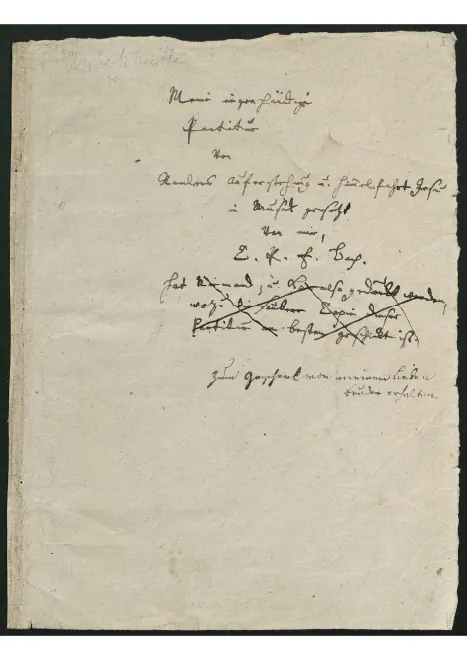 Meine eigenhändige
Partitur
von
Ramlers Auferstehung u. Himmelfahrt Jesu
in Musik gesetzt
von mir,
C. P. E. Bach.
Hat Niemand, u. kann also gedruckt werden,
wozu die saubere Copie dieser
Partitur am besten geschickt ist.
zum Geschenk von meinem lieben
Bruder erhalten.